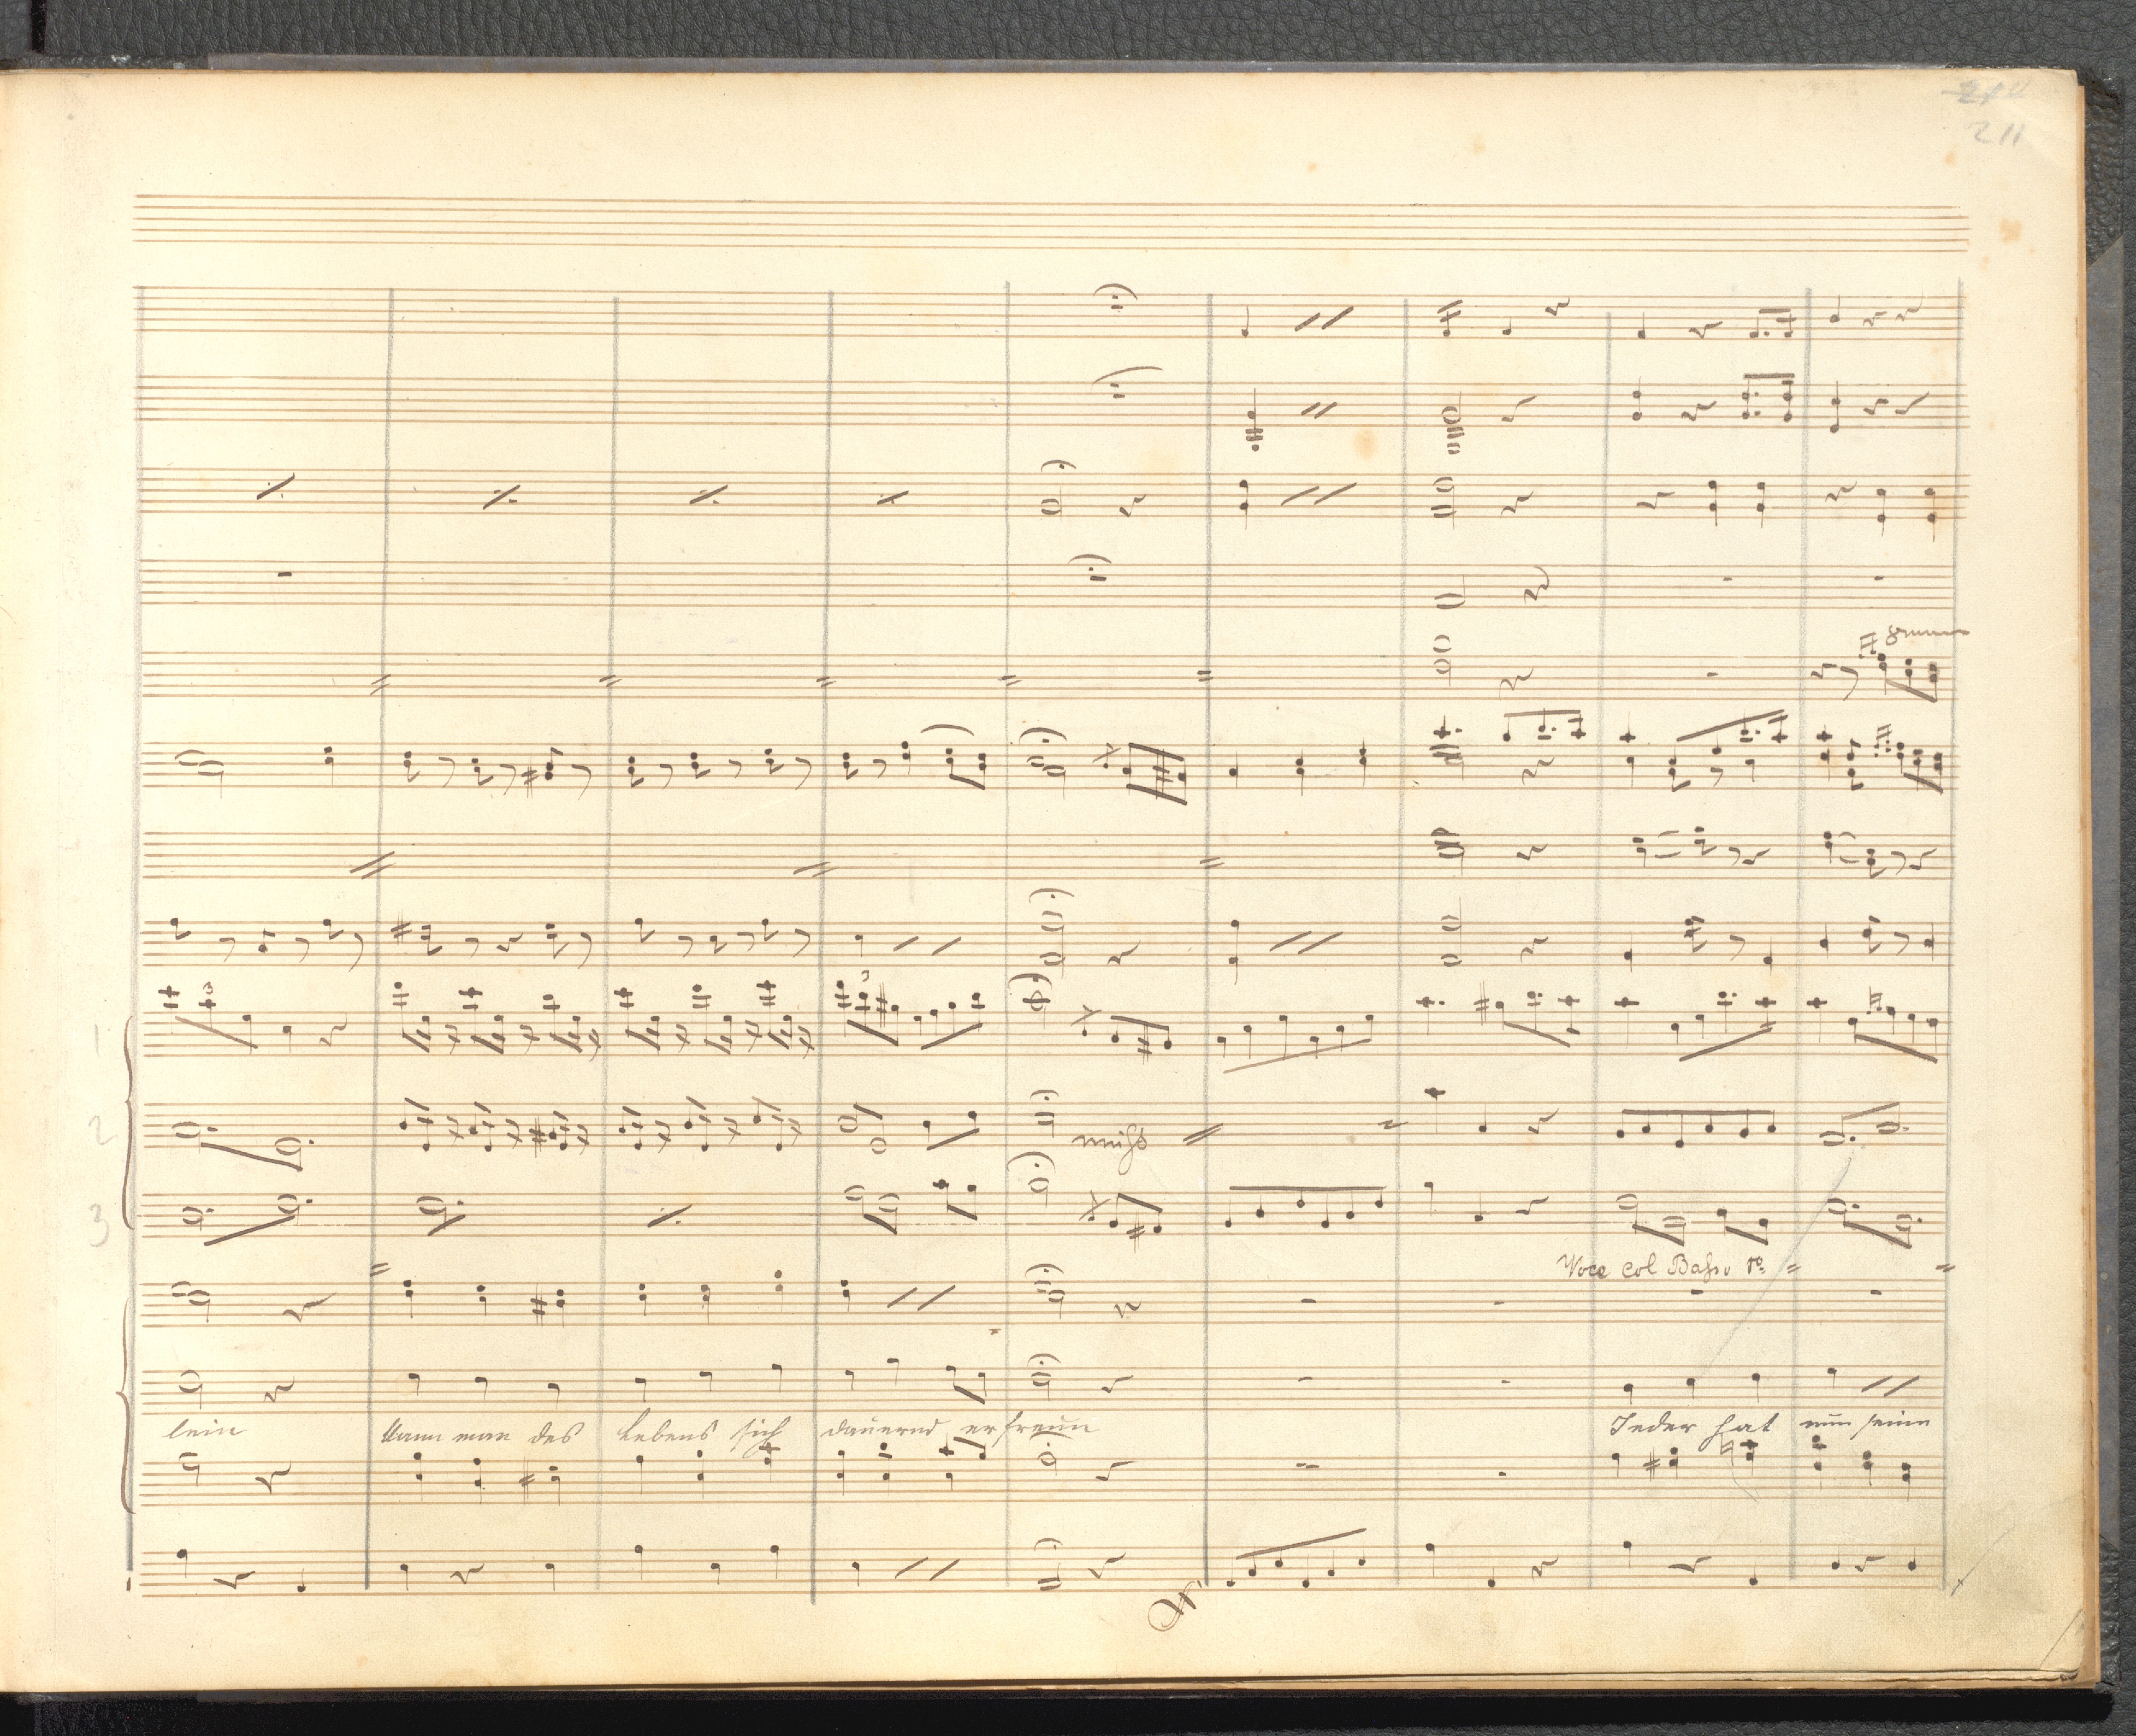 211
8
3
3
1
2
unis
3
Voce col Basso 1º
lein kann man des Lebens sich dauernd erfreun Jeder hat nun seine